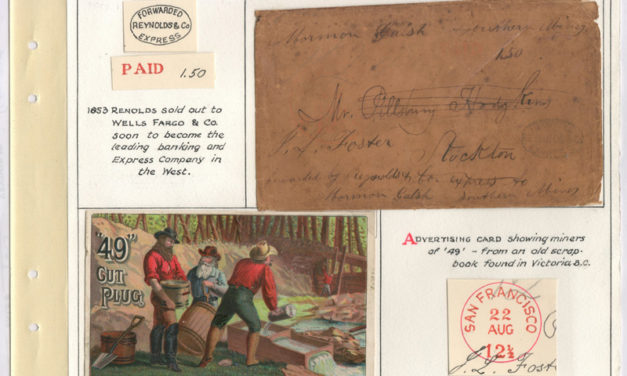 FORWARDED
REYNOLDS & Co.
EXPRESS
PAID 1.50
1853 RENOLDS sold out to
WELLS FARGO & CO.
soon to become the
leading banking and
Express Company in
the West.
Mormon Gulsh Southern Mines
1.50
Mr. Pillsbury Hodgkins
J. L. Foster
Stockton
Reynolds & Co. Express to
Mormon Gulsh Southern Mines
"49"
CUT
PLUG
ADVERTISING CARD showing miners
of '49' - from an old scrap-
book found in Victoria B.C.
SAN FRANCISCO
22
AUG
12½
J. L. Foste